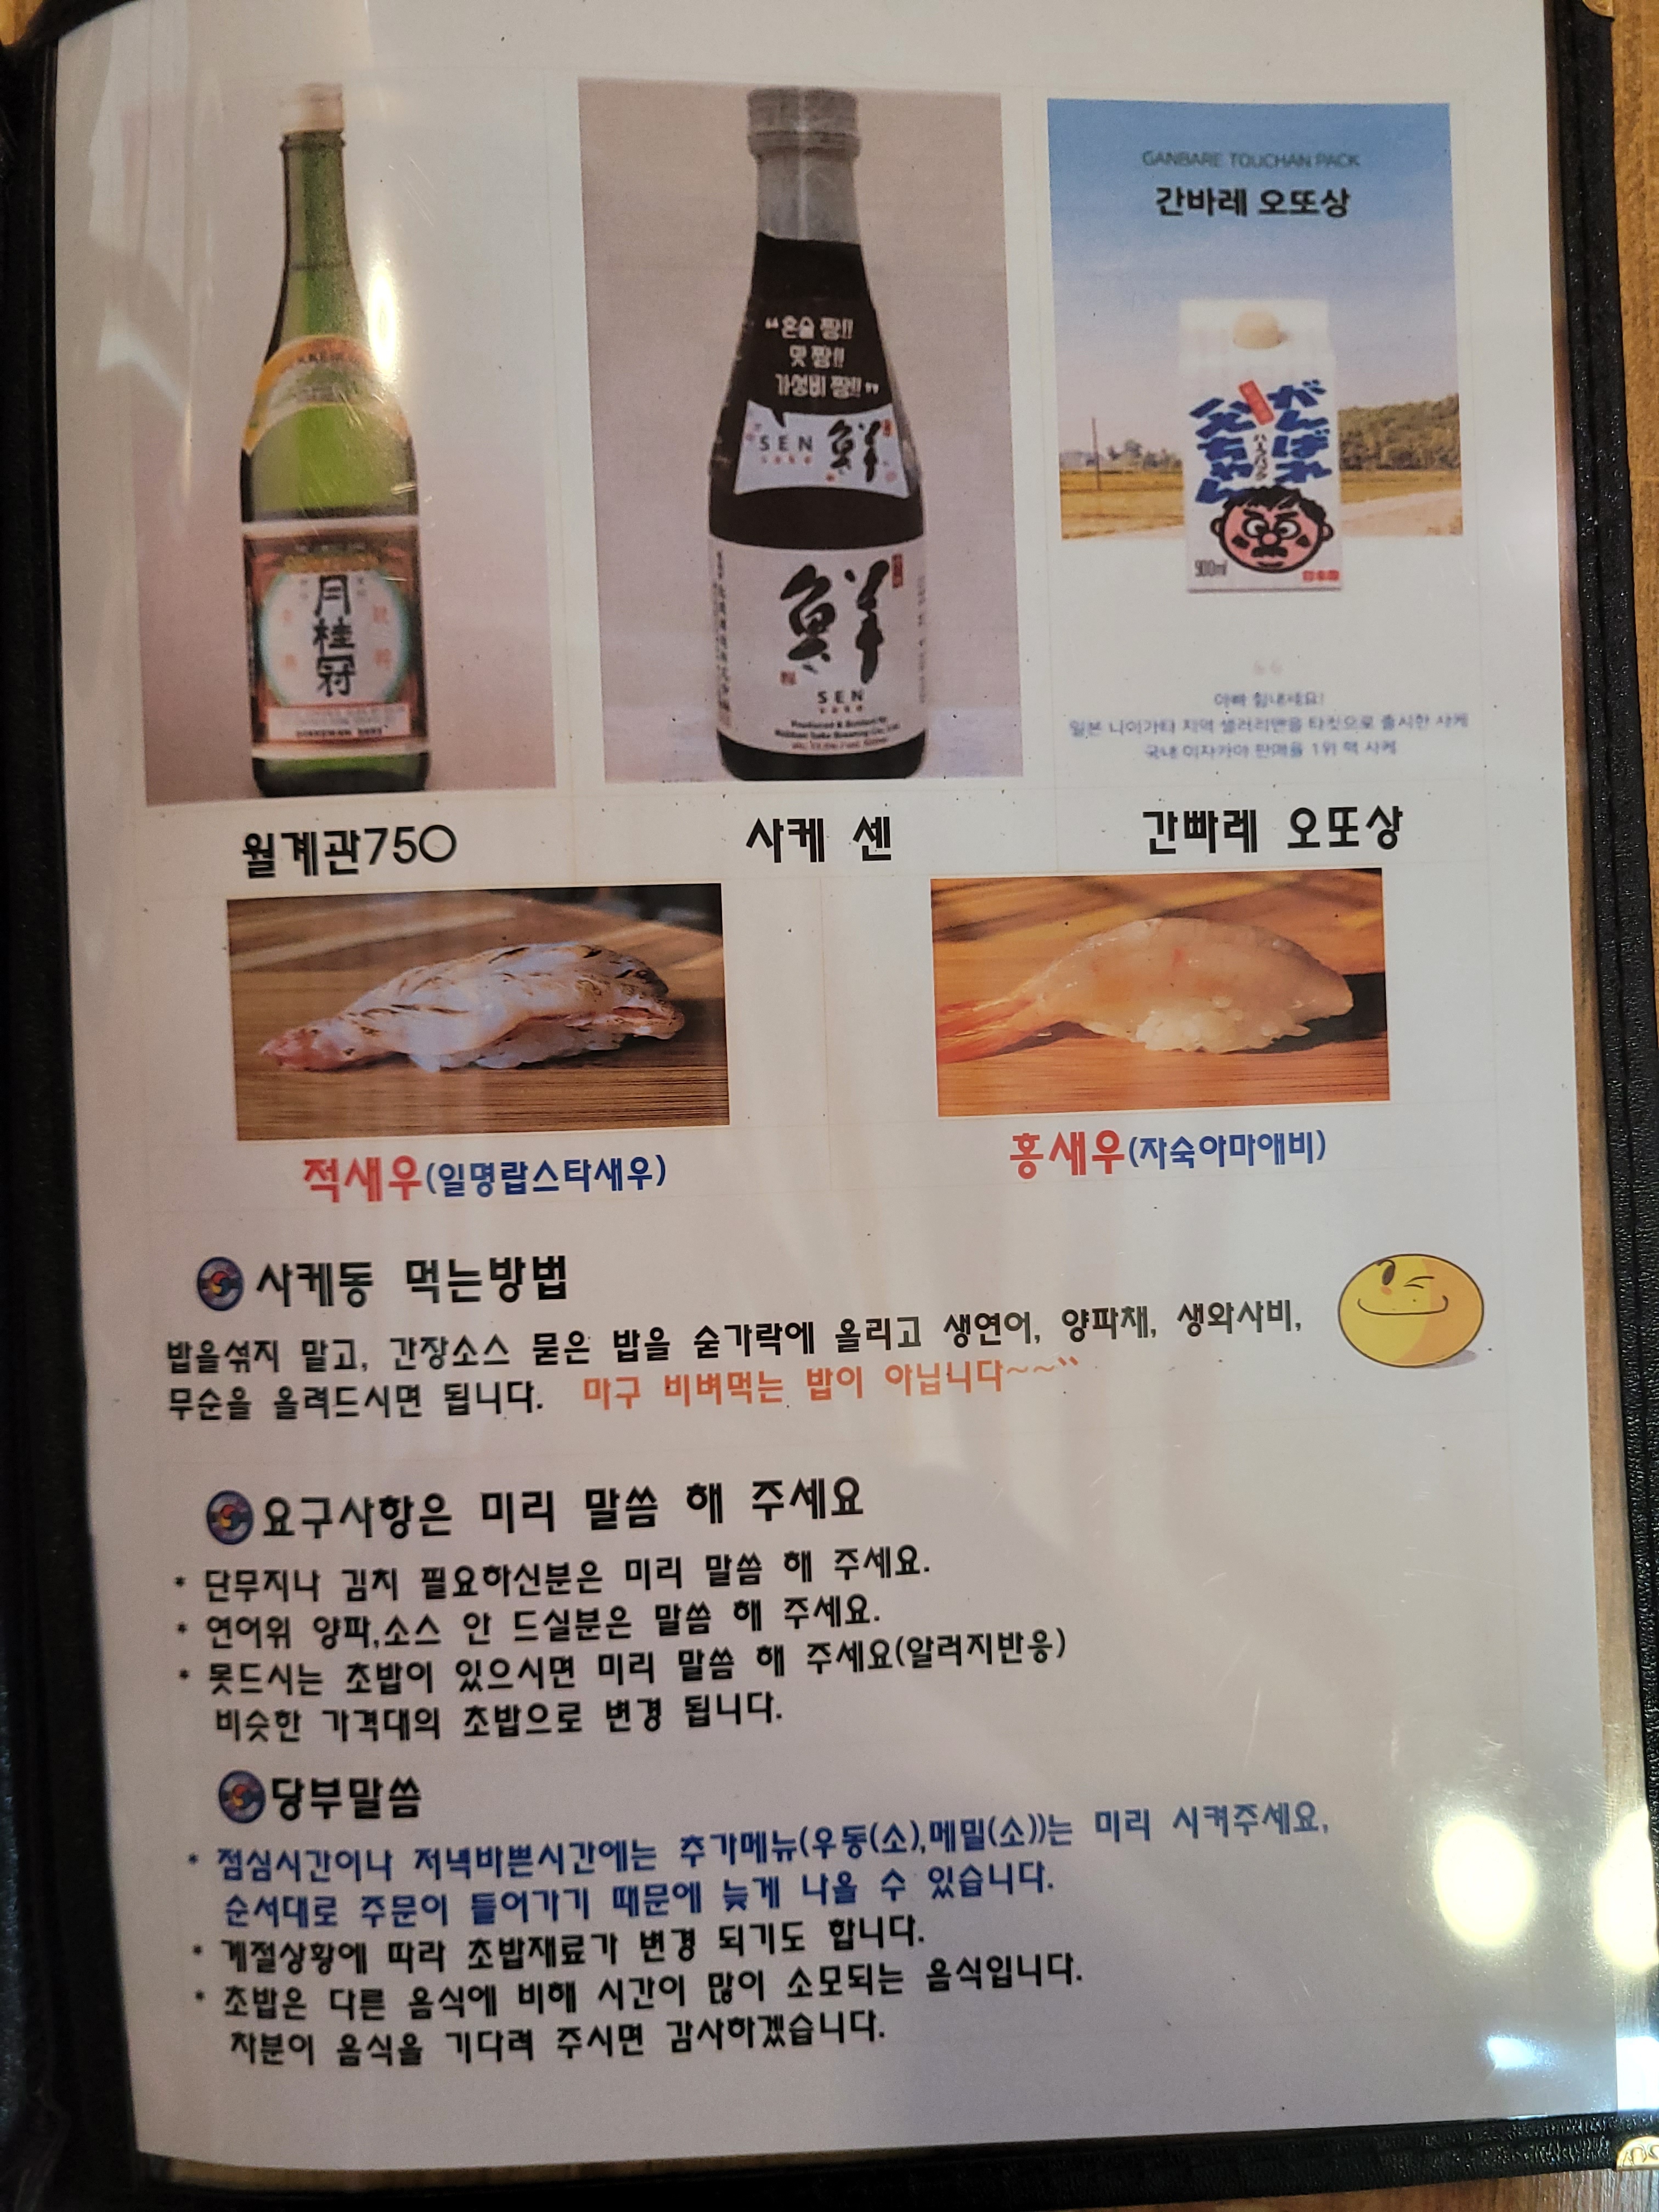 GANBARE TOUCHAN PACK
간바레 오또상
"혼술 짱!!
맛 짱!!
가성비 짱!!"
SEN 鮮
sake
がんばれ
父ちゃん
900ml
月桂冠
鮮
SEN
sake
Produced & Bottled by
아빠 힘내세요!
일본 니이가타 지역 샐러리맨을 타깃으로 출시한 사케
국내 이자카야 판매율 1위 팩 사케
월계관750
사케 센
간빠레 오또상
적새우(일명랍스타새우)
홍새우(자숙아마애비)
사케동 먹는방법
밥을섞지 말고, 간장소스 묻은 밥을 숟가락에 올리고 생연어, 양파채, 생와사비,
무순을 올려드시면 됩니다. 마구 비벼먹는 밥이 아닙니다~~``
요구사항은 미리 말씀 해 주세요
* 단무지나 김치 필요하신분은 미리 말씀 해 주세요.
* 연어위 양파,소스 안 드실분은 말씀 해 주세요.
* 못드시는 초밥이 있으시면 미리 말씀 해 주세요(알러지반응)
비슷한 가격대의 초밥으로 변경 됩니다.
당부말씀
* 점심시간이나 저녁바쁜시간에는 추가메뉴(우동(소),메밀(소))는 미리 시켜주세요,
순서대로 주문이 들어가기 때문에 늦게 나올 수 있습니다.
* 계절상황에 따라 초밥재료가 변경 되기도 합니다.
* 초밥은 다른 음식에 비해 시간이 많이 소모되는 음식입니다.
차분이 음식을 기다려 주시면 감사하겠습니다.